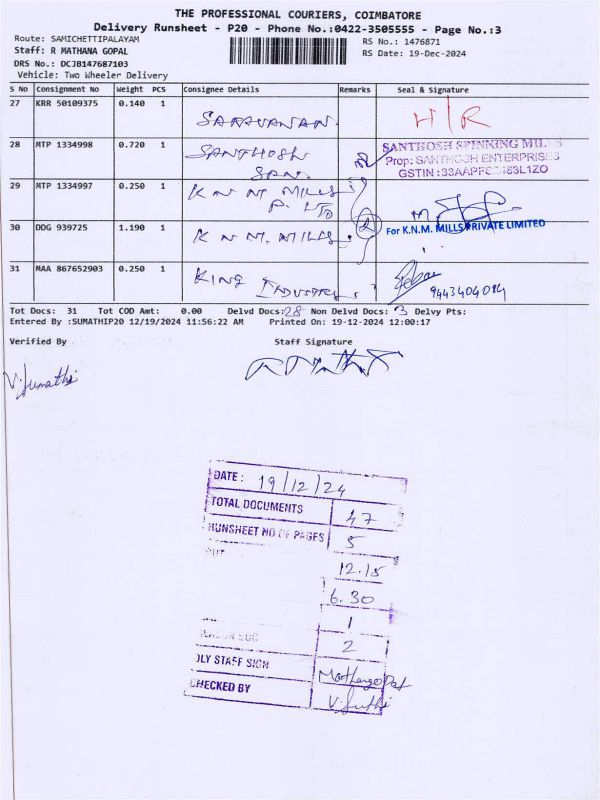 THE PROFESSIONAL COURIERS, COIMBATORE
Delivery Runsheet - P20 - Phone No.:0422-3505555 - Page No.:3
Route: SAMICHETTIPALAYAM
RS No.: 1476871
Staff: R MATHANA GOPAL
RS Date: 19-Dec-2024
DRS No.: DCJB147687103
Vehicle: Two Wheeler Delivery
S No Consignment No Weight PCS Consignee Details Remarks Seal & Signature
27 KRR 50109375 0.140 1
SARAVANAN. H/R
28 MTP 1334998 0.720 1
SANTHOSH SPN.
SANTHOSH SPINNING MILLS
Prop: SANTHOSH ENTERPRISES
GSTIN :33AAPFC
29 MTP 1334997 0.250 1
K N M MILLS
P. LTD
30 DDG 939725 1.190 1
K N M. MILLS
For K.N.M. MILLS PRIVATE LIMITED
31 MAA 867652903 0.250 1
KING INDUSTRIES
Tot Docs: 31 Tot COD Amt: 0.00 Delvd Docs: 28 Non Delvd Docs: 3 Delvy Pts:
Entered By :SUMATHIP20 12/19/2024 11:56:22 AM Printed On: 19-12-2024 12:00:17
Verified By Staff Signature
V. Sumathi
DATE : 19/12/24
TOTAL DOCUMENTS 47
RUNSHEET NO OF PAGES 5
12.15
6.30
1
2
DLY STAFF SIGN
CHECKED BY